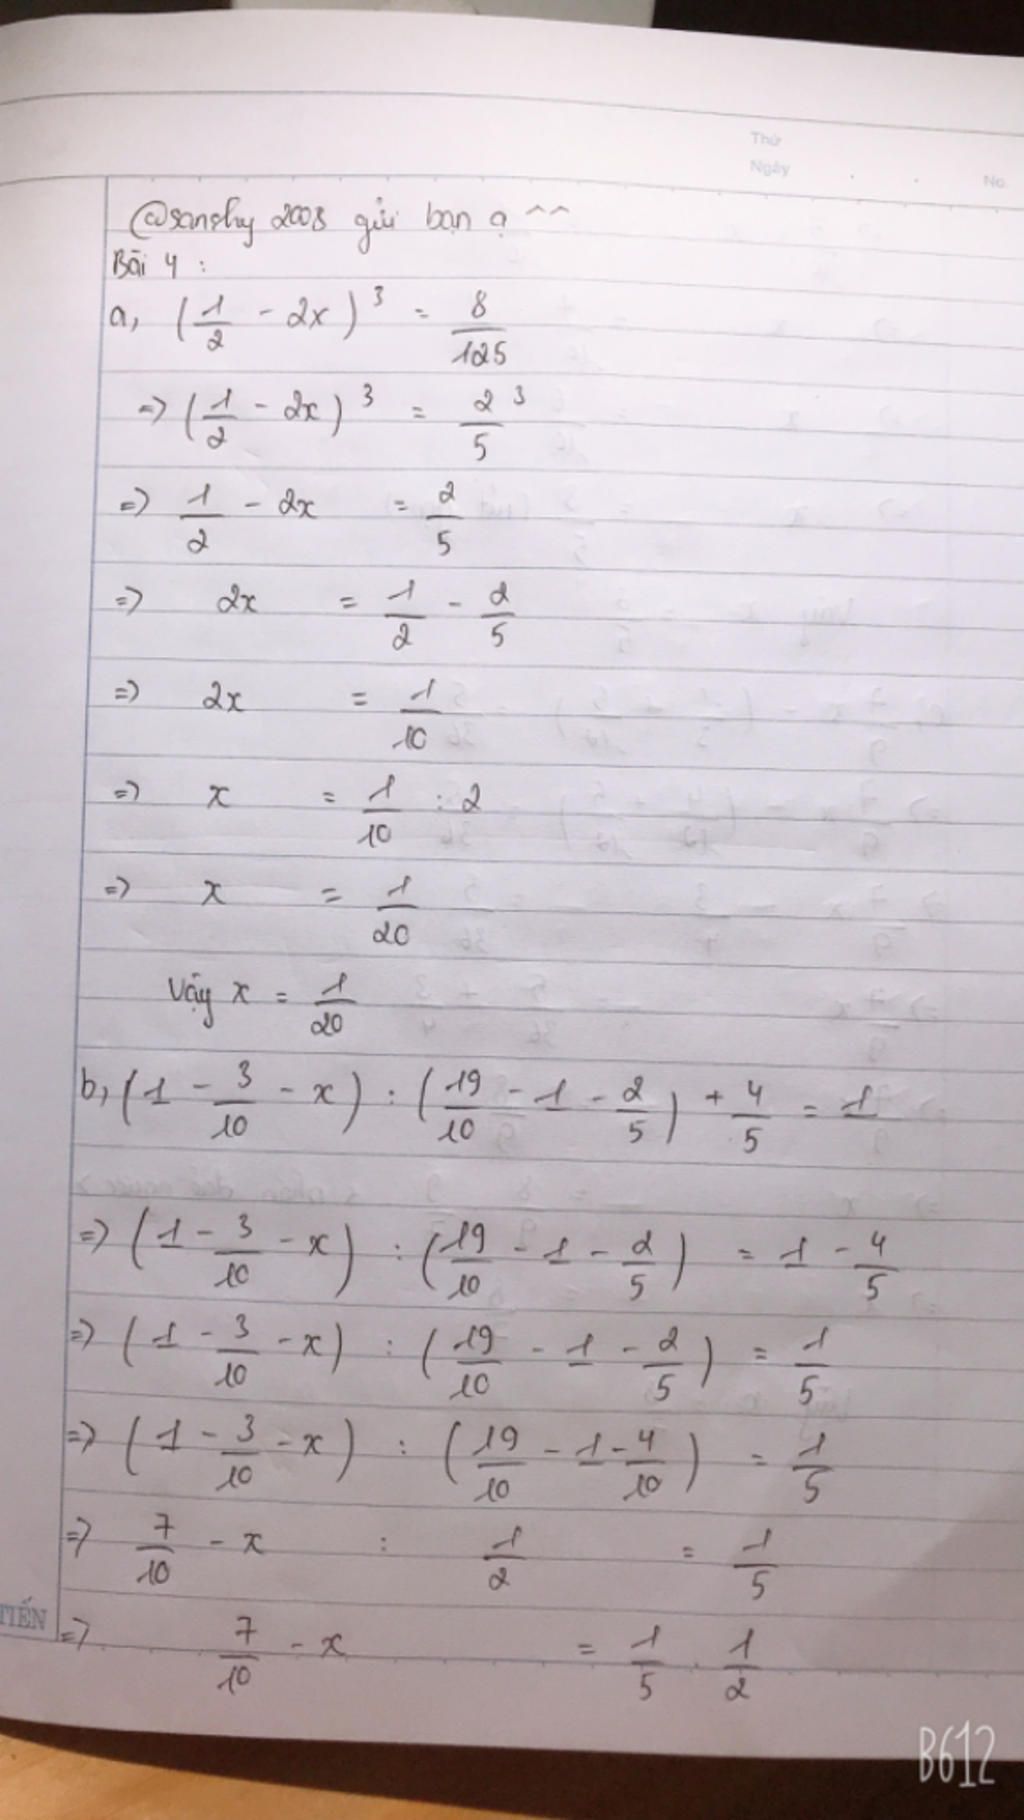 Thứ
Ngày . .
No.
@sanshy 2003 gửi bạn ạ ^^
Bài 4 :
a, (1/2 - 2x)³ = 8/125
=> (1/2 - 2x)³ = 2³/5
=> 1/2 - 2x = 2/5
=> 2x = 1/2 - 2/5
=> 2x = 1/10
=> x = 1/10 : 2
=> x = 1/20
Vậy x = 1/20
b, (1 - 3/10 - x) : (19/10 - 1 - 2/5) + 4/5 = 1
=> (1 - 3/10 - x) : (19/10 - 1 - 2/5) = 1 - 4/5
=> (1 - 3/10 - x) : (19/10 - 1 - 2/5) = 1/5
=> (1 - 3/10 - x) : (19/10 - 1 - 4/10) = 1/5
=> 7/10 - x : 1/2 = 1/5
TIẾN
=> 7/10 - x = 1/5 . 1/2
B612